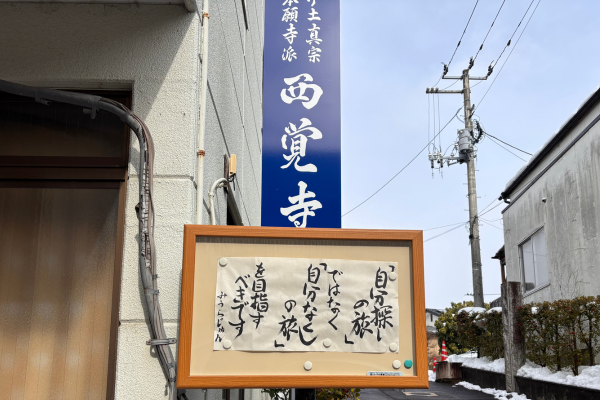 浄土真宗
本願寺派
西覚寺
「自分探し
の旅」
ではなく
「自分なくし
の旅」
を目指す
べきです
みうらじゅん